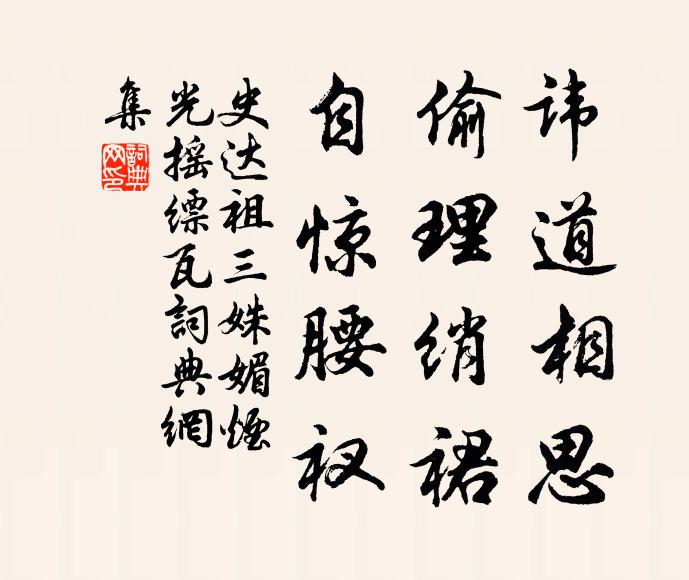 讳道相思
偷理绡裙
自惊腰衩
史达祖三姝媚烟
光摇缥瓦詞典網
集
詞典網印